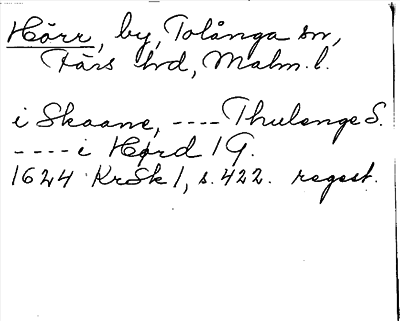 Hörr, by, Tolånga sn,
Färs hd, Malm. l.
i Skaane, ---- Thulenge S.
---- i Hørd 1 G.
1624 KrSk 1, s. 422. regest.